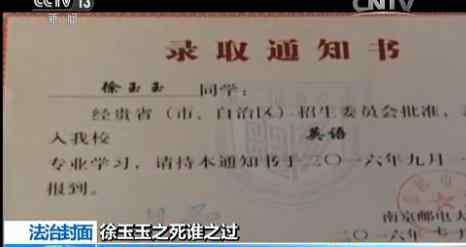 CCTV 13
新闻
CNTV
录取通知书
徐玉玉 同学:
经贵省(市、自治区)招生委员会批准,
入我校 英语
专业学习,请持本通知书于二〇一六年九月一
报到。
南京邮电大
二〇一六年七
法治封面 徐玉玉之死谁之过